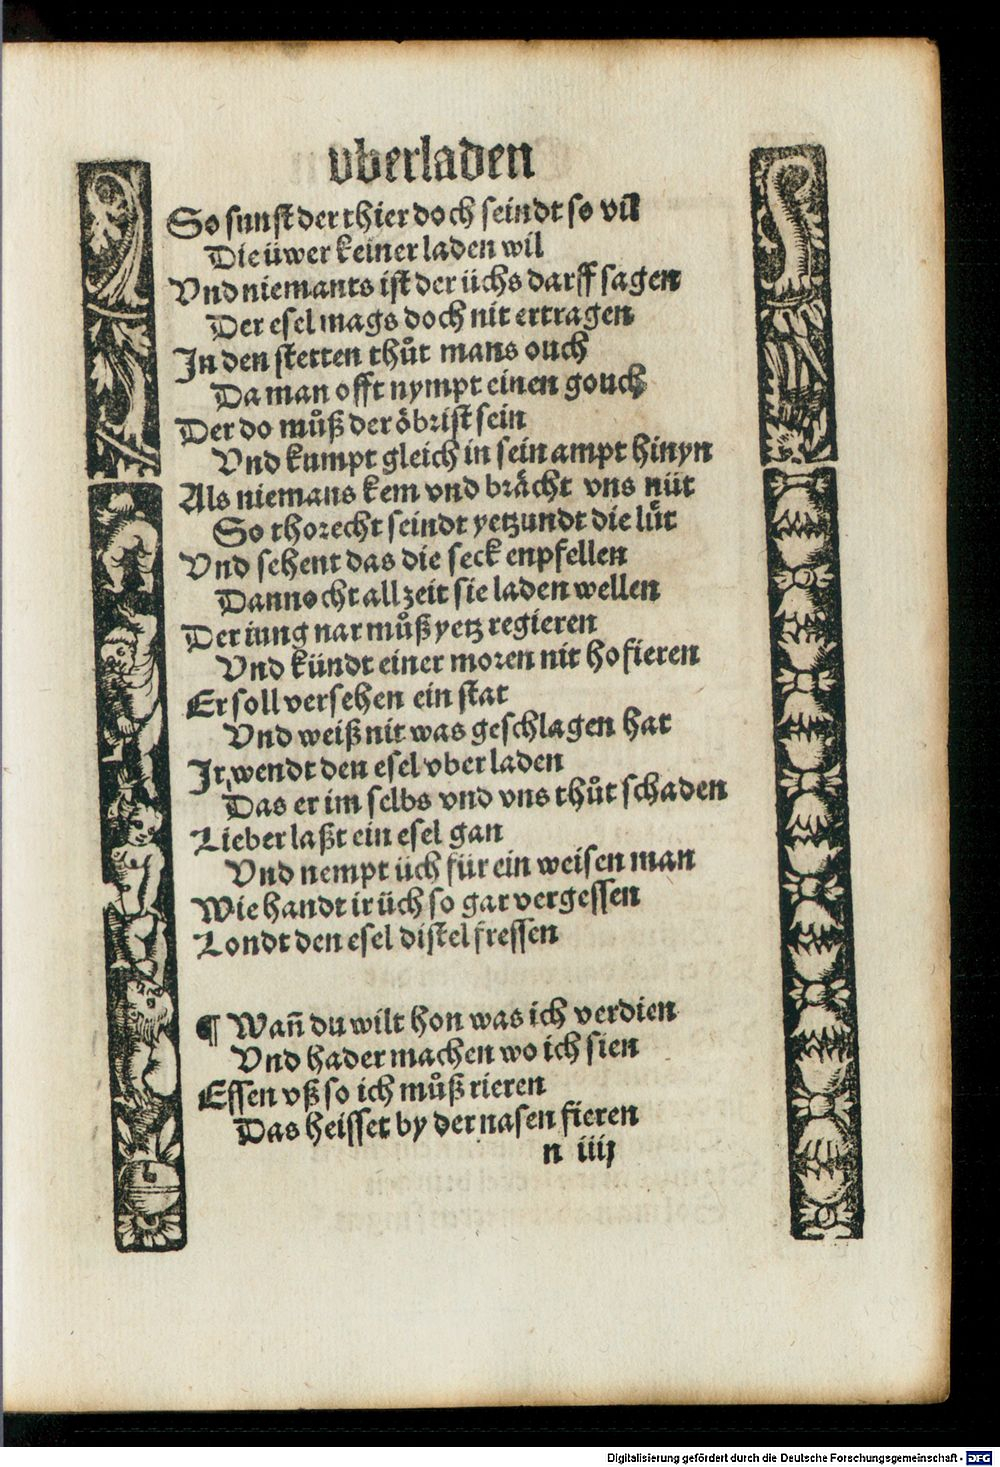 vberladen
So sunst der thier doch seindt so vil
Die üwer keiner laden wil
Vnd niemants ist der üchs darff sagen
Der esel mags doch nit ertragen
In den stetten thůt mans ouch
Da man offt nympt einen gouch
Der do můß der öbrist sein
Vnd kumpt gleich in sein ampt hinyn
Als niemans kem vnd brächt vns nüt
So thorecht seindt yetzundt die lüt
Vnd sehent das die seck enpfellen
Dannocht allzeit sie laden wellen
Der iung nar můß yetz regieren
Vnd kündt einer moren nit hofieren
Er soll versehen ein stat
Vnd weiß nit was geschlagen hat
Ir wendt den esel vberladen
Das er im selbs vnd vns thůt schaden
Lieber laßt ein esel gan
Vnd nempt üch für ein weisen man
Wie handt ir üch so gar vergessen
Londt den esel distel fressen
¶ Wañ du wilt hon was ich verdien
Vnd hader machen wo ich sien
Essen vß so ich můß rieren
Das heisset by der nasen fieren
n iiij
Digitalisierung gefördert durch die Deutsche Forschungsgemeinschaft - DFG